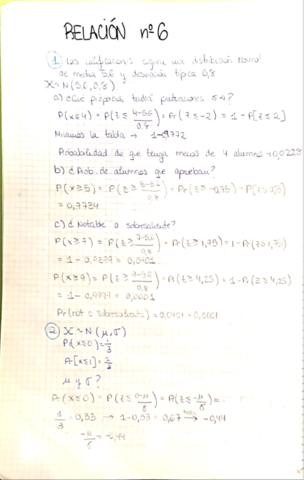 RELACIÓN nº 6
① Las calificaciones siguen una distribución Normal
de media 5,6 y desviación típica 0,8
X ~ N(5,6, 0,8)
a) ¿Qué proporción tendrá puntuaciones ≤ 4?
P(x≤4) = P(z ≤ 4-5,6/0,8) = Pr(z ≤ -2) = 1 - P[z ≤ 2]
Miramos la tabla → 1-0,9772
Probabilidad de que tenga menos de 4 alumnos → 0,0228
b) ¿Prob. de alumnos que aprueban?
P(x≥5) = P(z ≥ 5-5,6/0,8) = Pr(z ≥ -0,75) = P[z ≤ 0,75]
= 0,7734
c) ¿Notable o sobresaliente?
P(x≥7) = P(z ≥ 7-5,6/0,8) = Pr(z ≥ 1,75) = 1 - Pr(z ≤ 1,75)
= 1 - = 0,0401
P(x≥9) = P(z ≥ 9-5,6/0,8) = Pr(z ≥ 4,25) = 1 - P(z ≤ 4,25)
= 1 - 0,9999 = 0,0001
Pr(not o sobresaliente) = 0,0401 + 0,0001
② X ~ N(μ, σ)
P(x≤0) = 1/3
Pr[x≤1] = 2/3
μ y σ?
Pr(x≤0) = P(z ≤ 0-μ/σ) = Pr(z ≤ -μ/σ) =
1/3 = 0,33 → 1-0,33 = 0,67 → -0,44
-μ/σ = -0,44